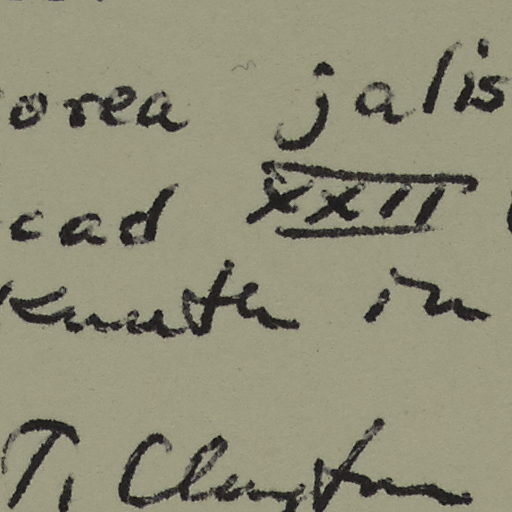 orea jalis
cad XXII
Knuth in
T. Clayton